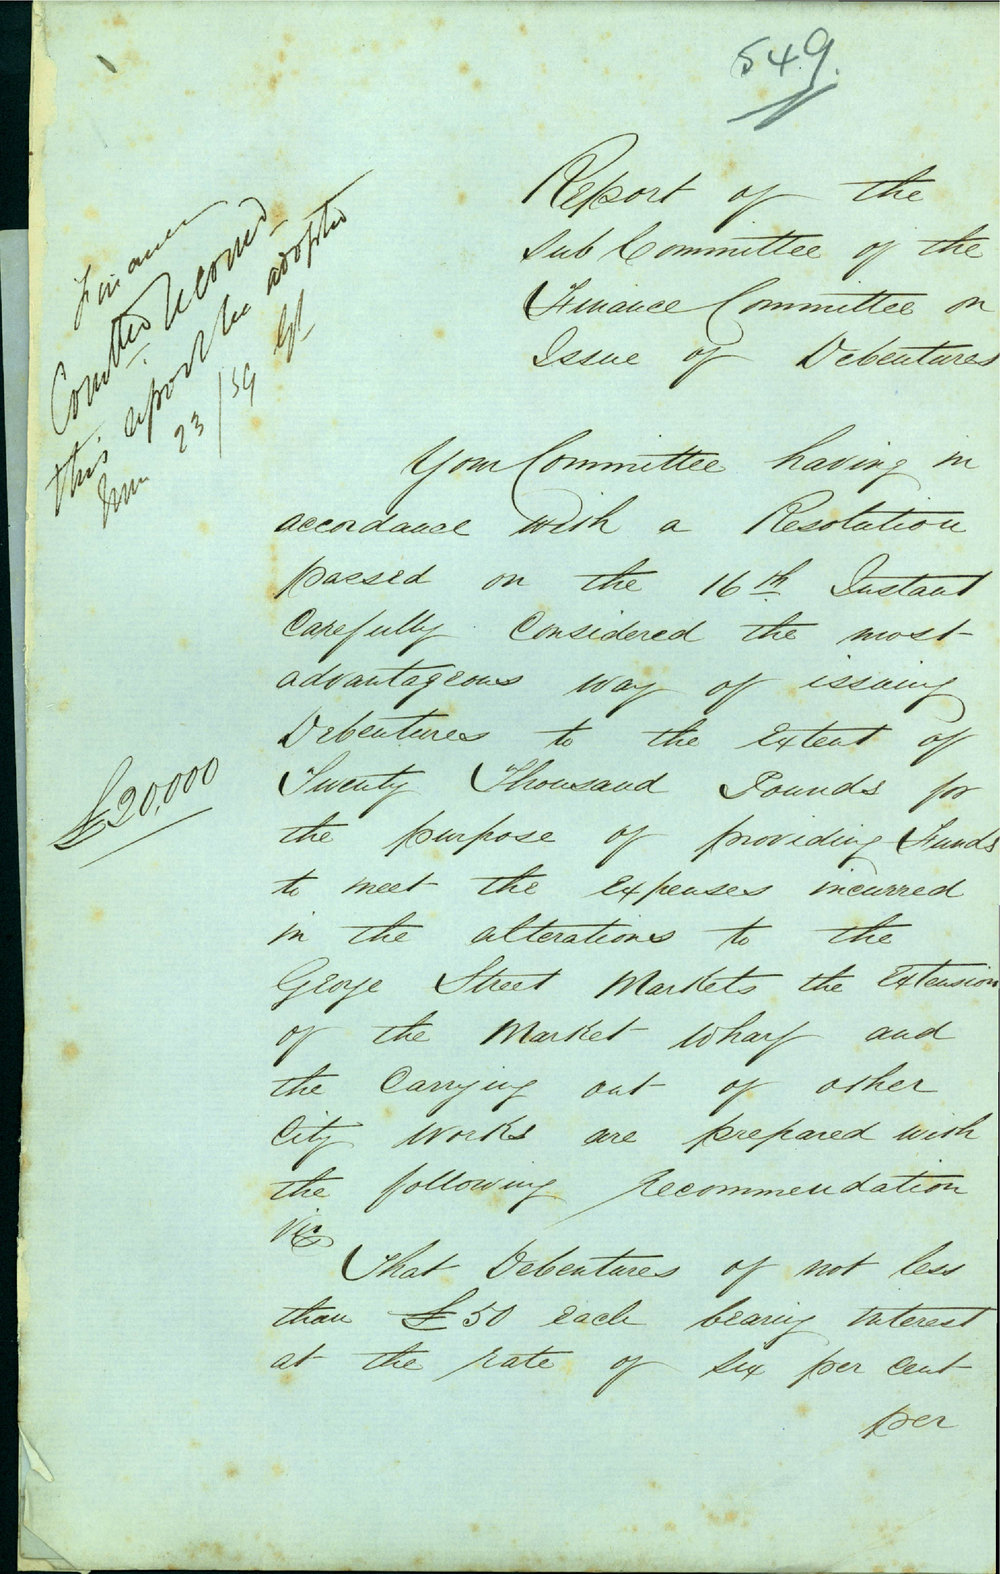 549.
Report of the
Sub Committee of the
Finance Committee on
Issue of Debentures
Finance
Comttee recomd
this report be adopted
23/59
Your Committee having in
accordance with a Resolution
passed on the 16th Instant
Carefully Considered the most
advantageous way of issuing
Debentures to the extent of
Twenty Thousand Pounds for
£20,000
the purpose of providing Funds
to meet the expenses incurred
in the alterations to the
George Street Markets the Extension
of the Market Wharf and
the Carrying out of other
City Works are prepared with
the following Recommendation
Viz
That Debentures of not less
than £50 each bearing interest
at the rate of six per cent
per